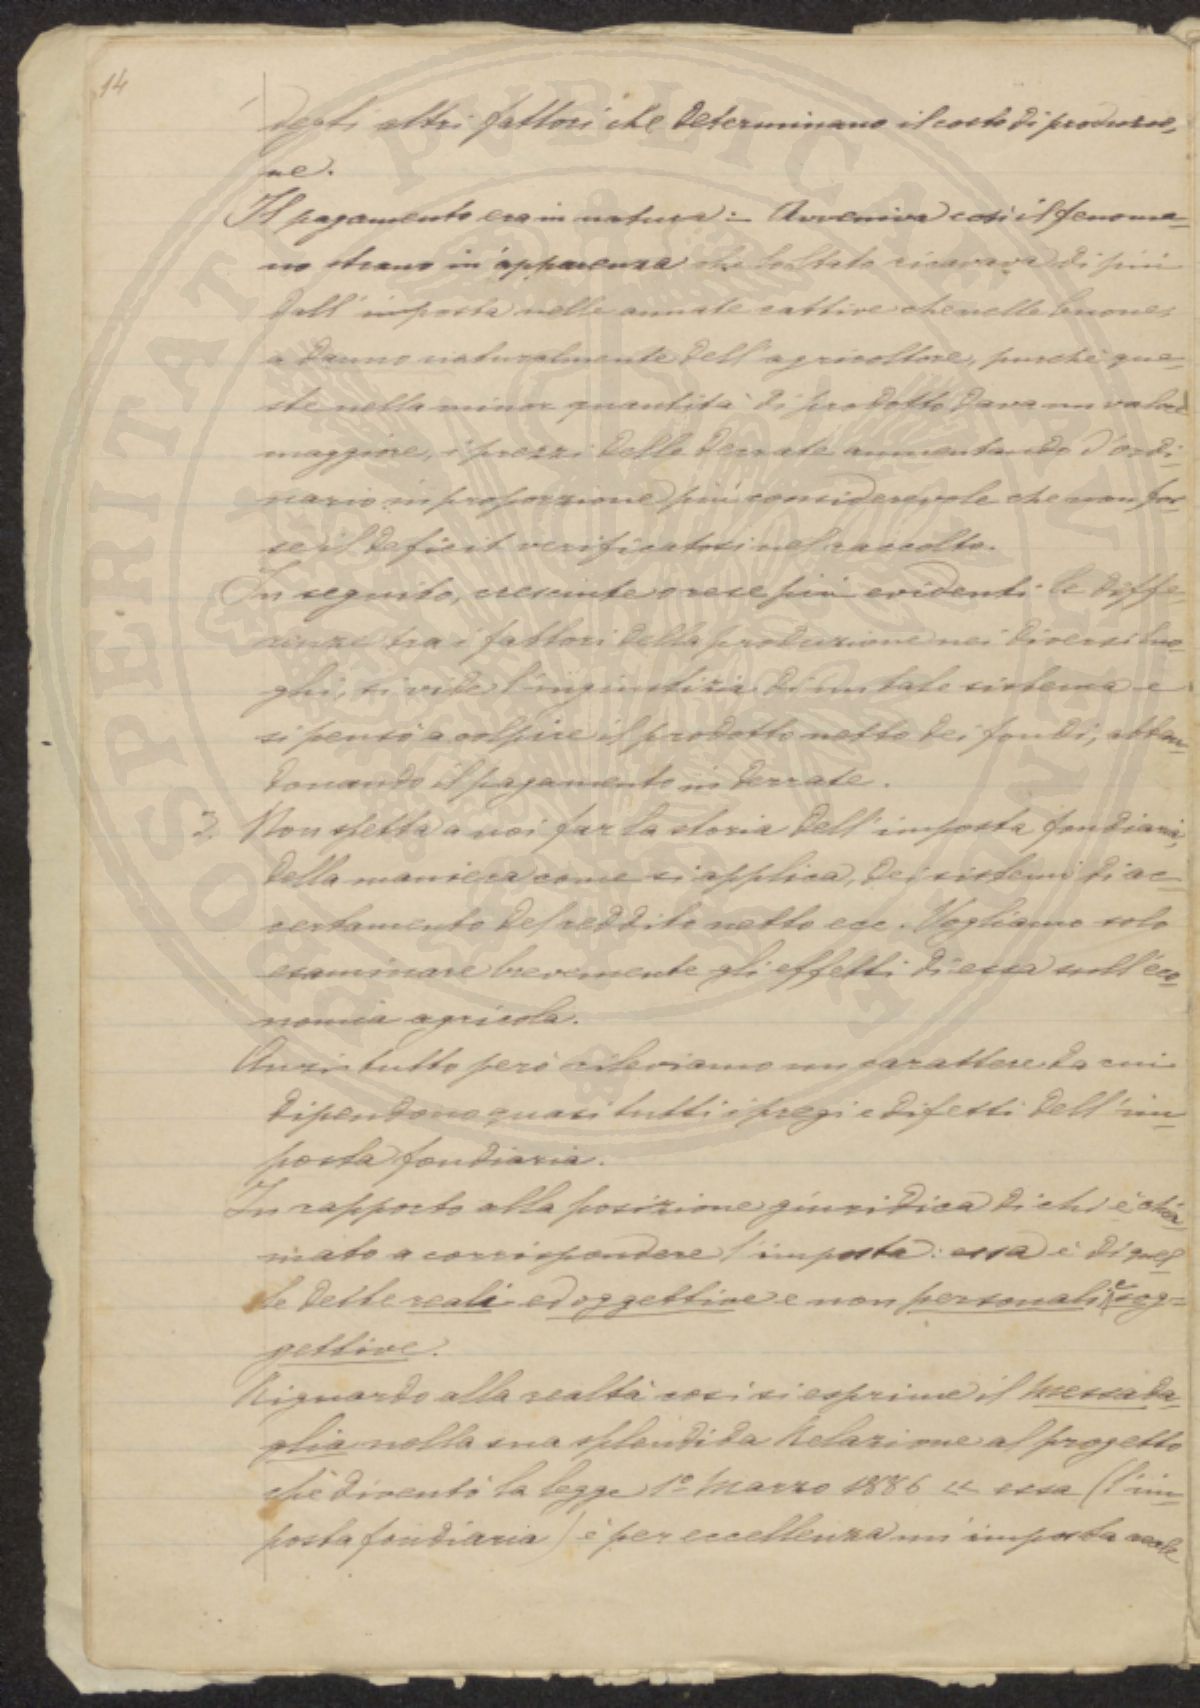 14
degli altri fattori che determinano il costo di produzio,
ne.
Il pagamento era in natura: - Avveniva così il fenome-
no strano in apparenza che lo Stato ricavava di più
dall' imposta nelle annate cattive che nelle buone,
a danno naturalmente dell' agricoltore, purchè que-
ste nella minor quantità di prodotto davano un valor
maggiore, i prezzi delle derrate aumentando d'ordi-
nario in proporzione più considerevole che non fos-
se il deficit verificatosi nel raccolto.
In seguito, cresciute o rese più evidenti le diffe-
renze tra i fattori della produzione nei diversi luo-
ghi, si vide l'ingiustizia di un tale sistema e
si pensò a colpire il prodotto netto dei fondi, abban-
donando il pagamento in derrate.
2. Non spetta a noi far la storia dell' imposta fondiaria,
della maniera come si applica, dei sistemi di ac-
certamento del reddito netto ecc. Vogliamo solo
esaminare brevemente gli effetti di essa sull'eco-
nomia agricola.
Anzi tutto però rileviamo un carattere da cui
dipendono quasi tutti i pregi e difetti dell' im-
posta fondiaria.
In rapporto alla posizione giuridica di chi è chia
mato a corrispondere l' imposta: essa è di quel-
le dette reali ed oggettive e non personali e sog-
gettive.
Riguardo alla realtà così si esprime il Messeda-
glia nella sua splendida Relazione al progetto
che diventò la legge 1º Marzo 1886 « essa (l' im-
posta fondiaria) è per eccellenza un' imposta reale